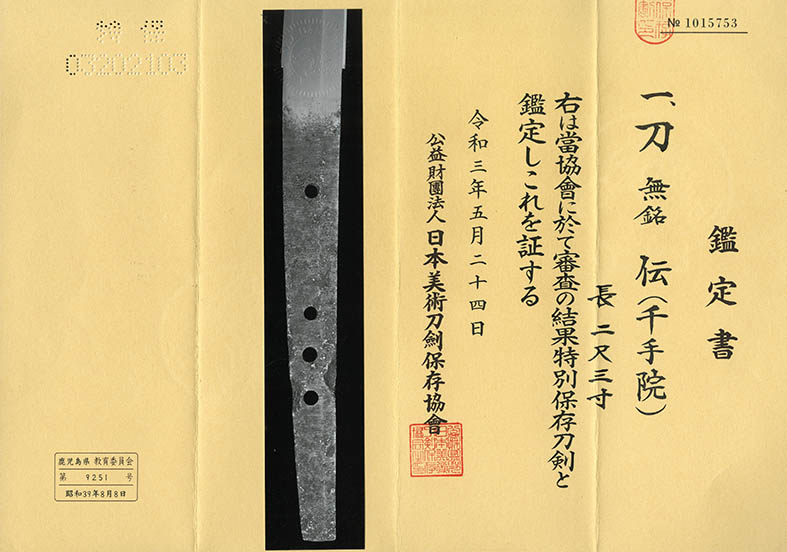 № 1015753
鑑定書
一、刀 無銘 伝(千手院)
長 二尺三寸
右は當協會に於て審査の結果特別保存刀剣と
鑑定しこれを証する
令和三年五月二十四日
公益財團法人 日本美術刀劍保存協會
特保
03202103
鹿児島県 教育委員会
第 9251 号
昭和39年8月8日